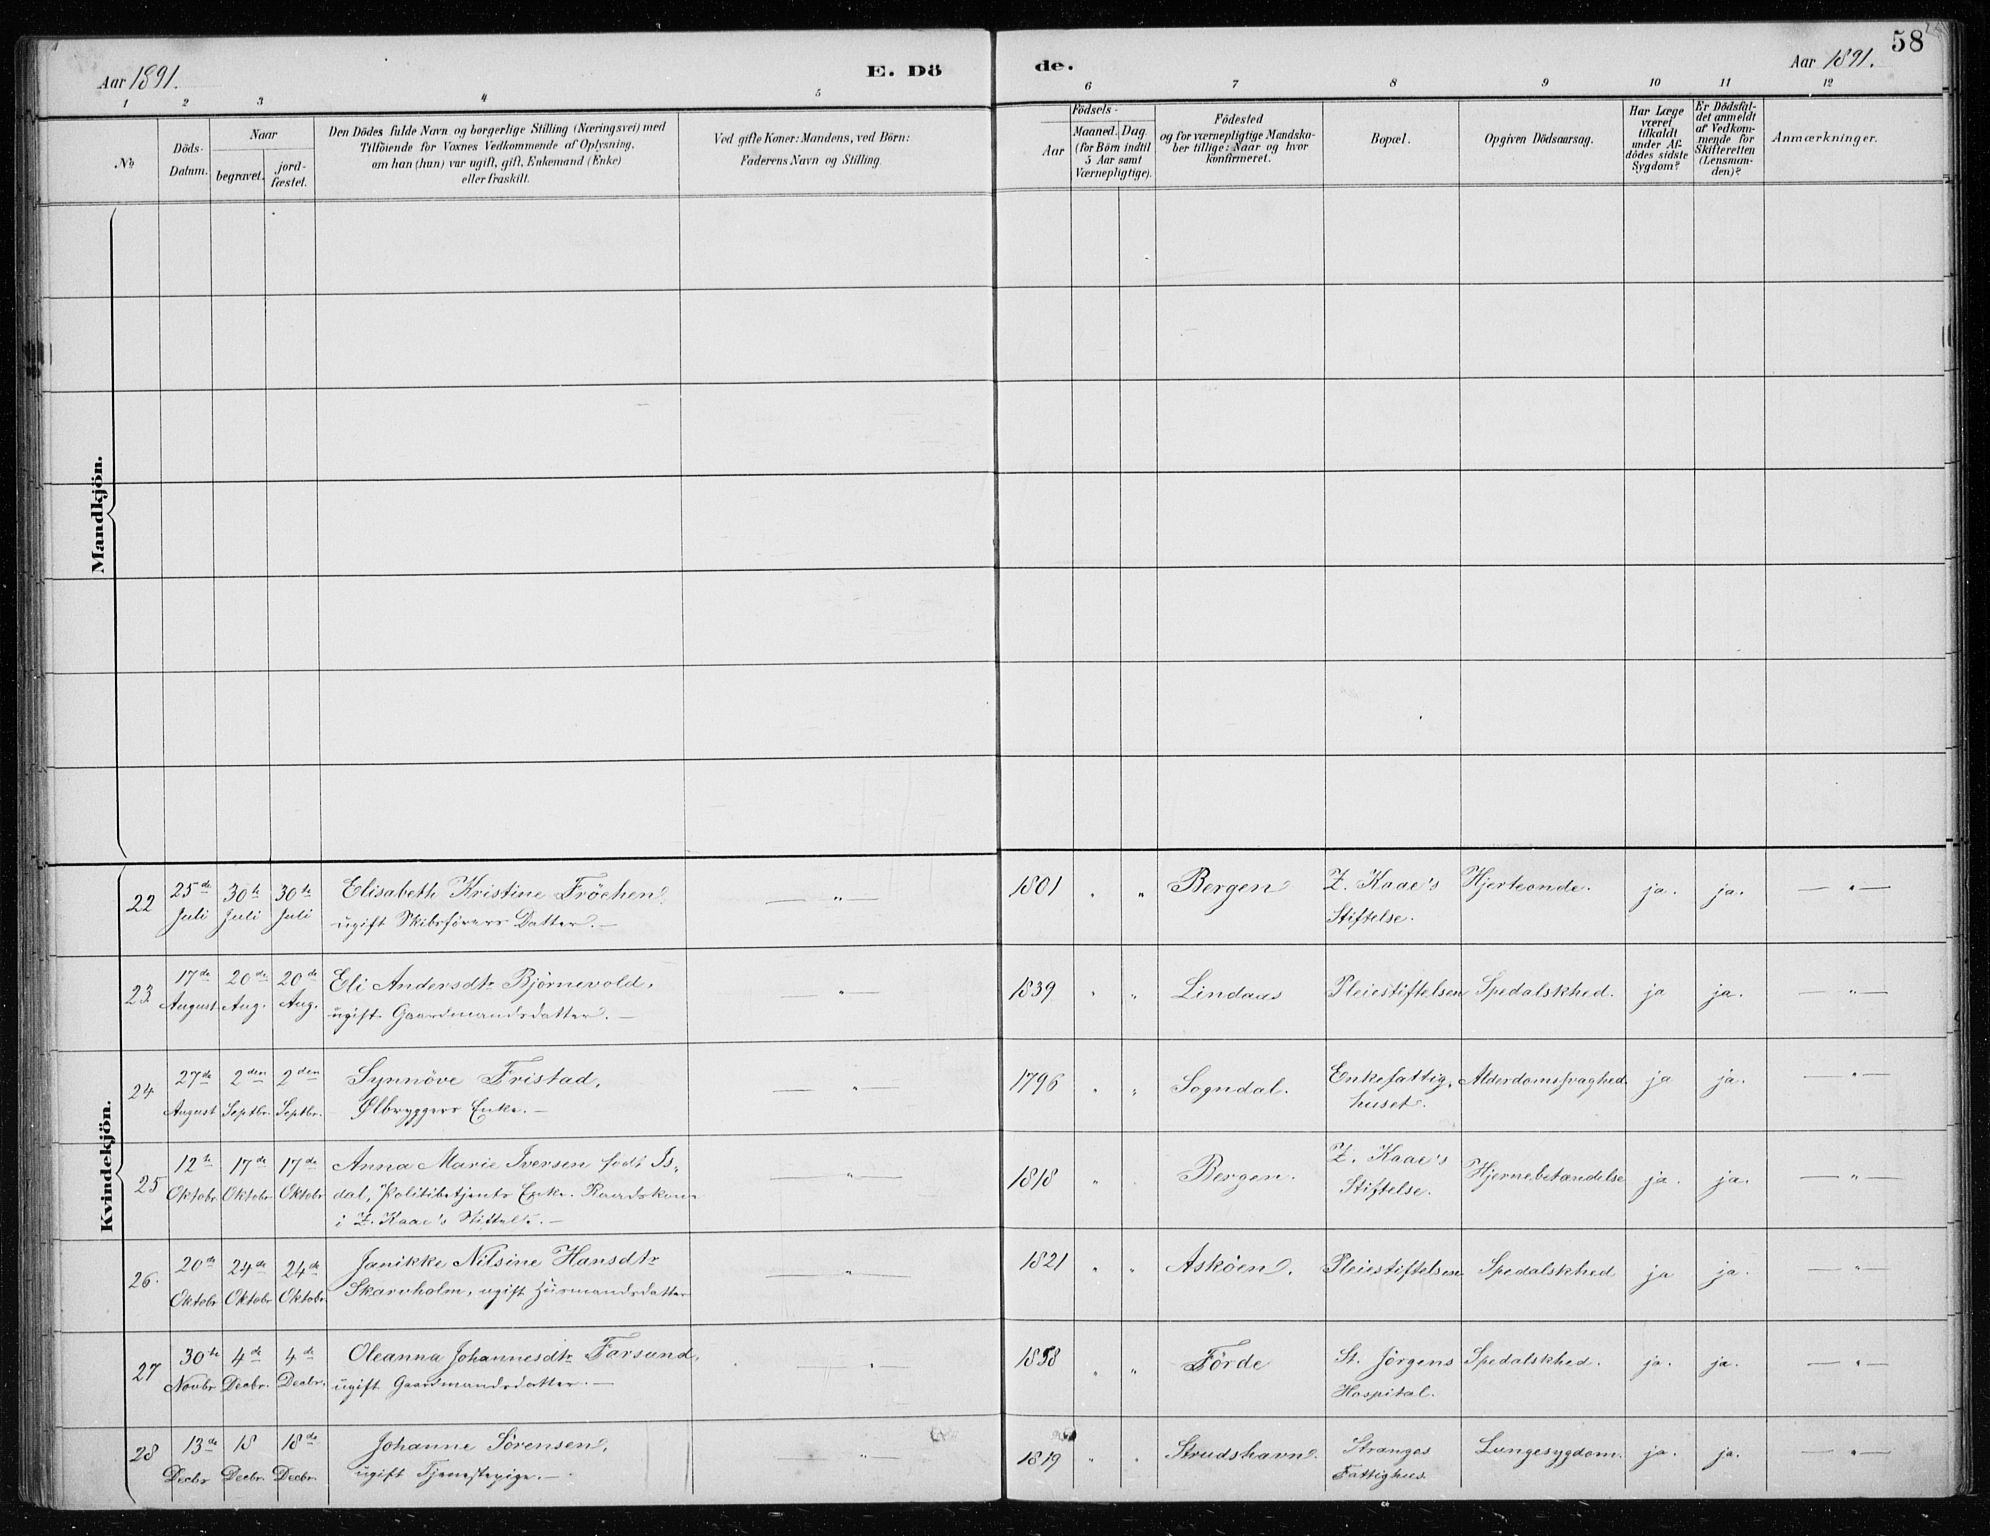 58
Aar 1891.
E. Dö
de.
Aar 1891.
1 2 3 4 5 6 7 8 9 10 11 12
No
Döds-
Datum.
Naar
begravet.
jord-
fæstet.
Den Dödes fulde Navn og borgerlige Stilling (Næringsvei) med
Tilföiende for Voxnes Vedkommende af Oplysning,
om han (hun) var ugift, gift, Enkemand (Enke)
eller fraskilt.
Ved gifte Koner: Mandens, ved Börn:
Faderens Navn og Stilling.
Födsels-
Aar
Maaned. Dag.
(for Börn indtil
5 Aar samt
Værnepligtige).
Födested
og for værnepligtige Mandska-
ber tillige: Naar og hvor
konfirmeret.
Bopæl.
Opgiven Dödsaarsag.
Har Læge
været
tilkaldt
under Af-
dödes sidste
Sygdom?
Er Dödsfal-
det anmeldt
af Vedkom-
mende for
Skifteretten
(Lensman-
den)?
Anmærkninger.
Mandkjön.
Kvindekjön.
22 25de Juli 30te Juli 30te Juli Elisabeth Kristine Fröchen,
ugift Skibsförers Datter. — — " — 1801 " " Bergen Z. Kaae's Stiftelse. Hjerteonde. ja. ja. — " —
23 17de August 20de Aug. 20de Aug. Eli Andersdtr Björnevold,
ugift Gaardmandsdatter. — — " — 1839 " " Lindaas Pleiestiftelsen Spedalskhed. ja ja. — " —
24 27de August 2den Septbr. 2den Septbr. Synnöve Fristad,
Ølbryggers Enke. — — " — 1796 " " Sogndal. Enkefattig-
huset. Alderdomssvaghed. ja ja. — " —
25 12te Oktobr 17de Oktobr 17de Oktobr Anna Marie Iversen født Is-
dal, Politibetjents Enke. Raadskone
i Z. Kaae's Stiftelse. — — " — 1818 " Bergen. Z. Kaae's Stiftelse. Hjernebetændelse ja. ja. — " —
26. 20de Oktobr 24de Oktobr 24de Oktobr. Janikke Nilsine Hansdtr
Skarvholm, ugift Husmandsdatter — " — 1821 " " Askøen. Pleiestiftelsen Spedalskhed ja ja. — " —
27 30te Novbr 4de Decbr. 4de Decbr. Oleanna Johannesdtr Farsund,
ugift Gaardmandsdatter. — — " — 1858 " " Förde St. Jörgens Hospital. Spedalskhed. ja. ja. — " —
28 13de Decbr 18 Decbr. 18de Decbr. Johanne Sörensen,
ugift Tjenestepige. — — " — 1819 " " Strudshavn. Stranges Fattighus Lungesygdom. ja. ja. — " —